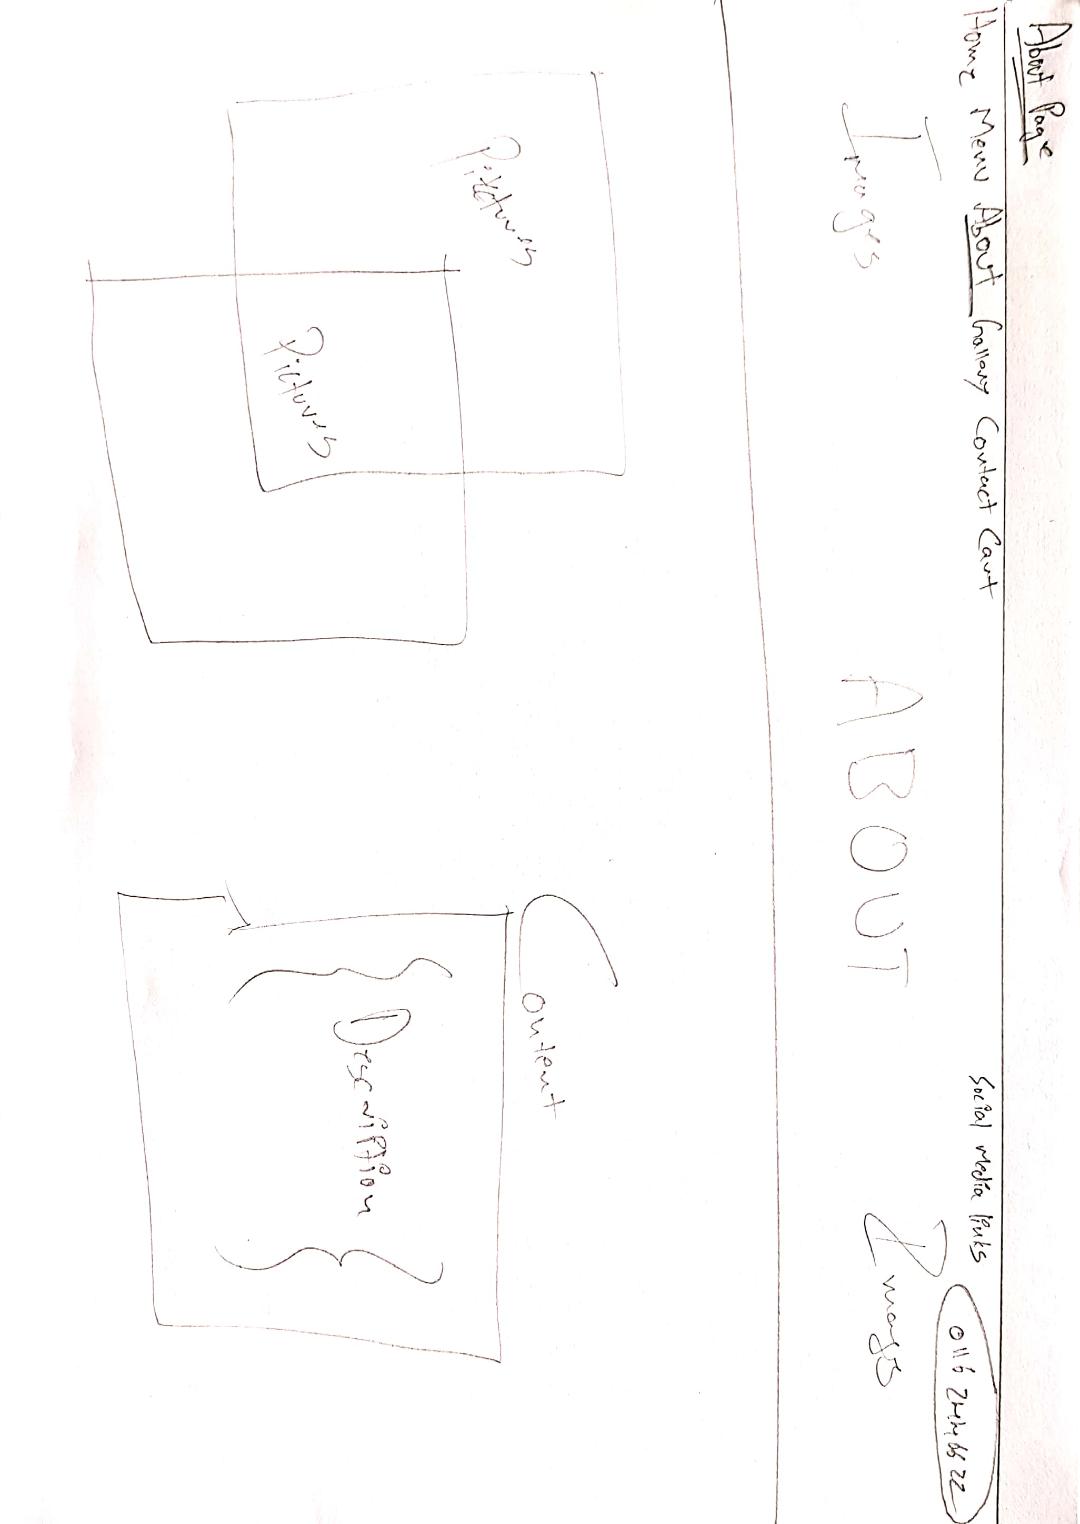 About Page
Home Menu About Gallery Contact Cart
Social media links
0116 2446622
Images
ABOUT
Images
Pictures
Pictures
Content
Description